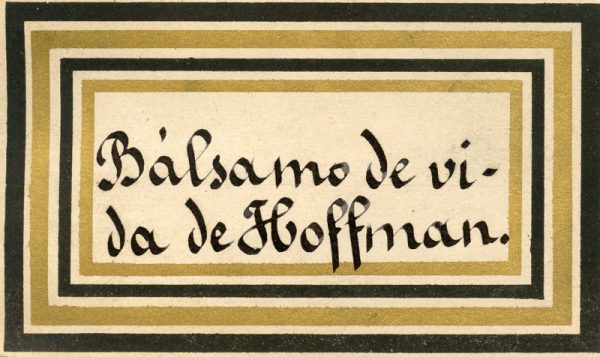 Bálsamo de vi-
da de Hoffman.